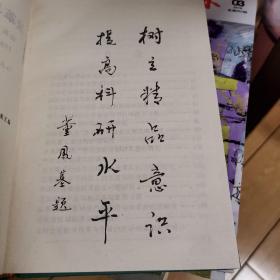 树立精品意识
提高科研水平
董凤基题